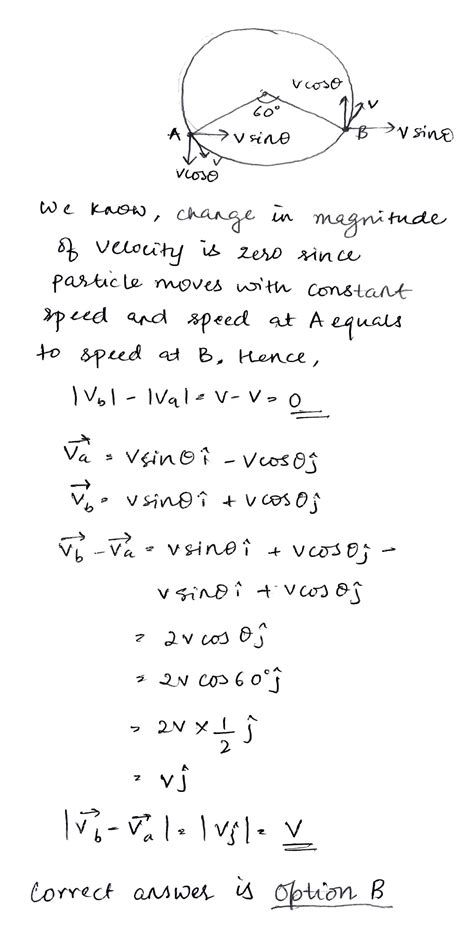 vcosθ
v
60°
A
vsinθ
B
vsinθ
vcosθ
v
We know, change in magnitude
of velocity is zero since
particle moves with constant
speed and speed at A equals
to speed at B. Hence,
|Vb| - |Va| = V - V = 0
V⃗a = vsinθ î - vcosθ ĵ
V⃗b = vsinθ î + vcosθ ĵ
V⃗b - V⃗a = vsinθ î + vcosθ ĵ -
vsinθ î + vcosθ ĵ
= 2v cos θ ĵ
= 2v cos 60° ĵ
= 2v × 1/2 ĵ
= vĵ
|V⃗b - V⃗a| = |vĵ| = V
Correct answer is Option B